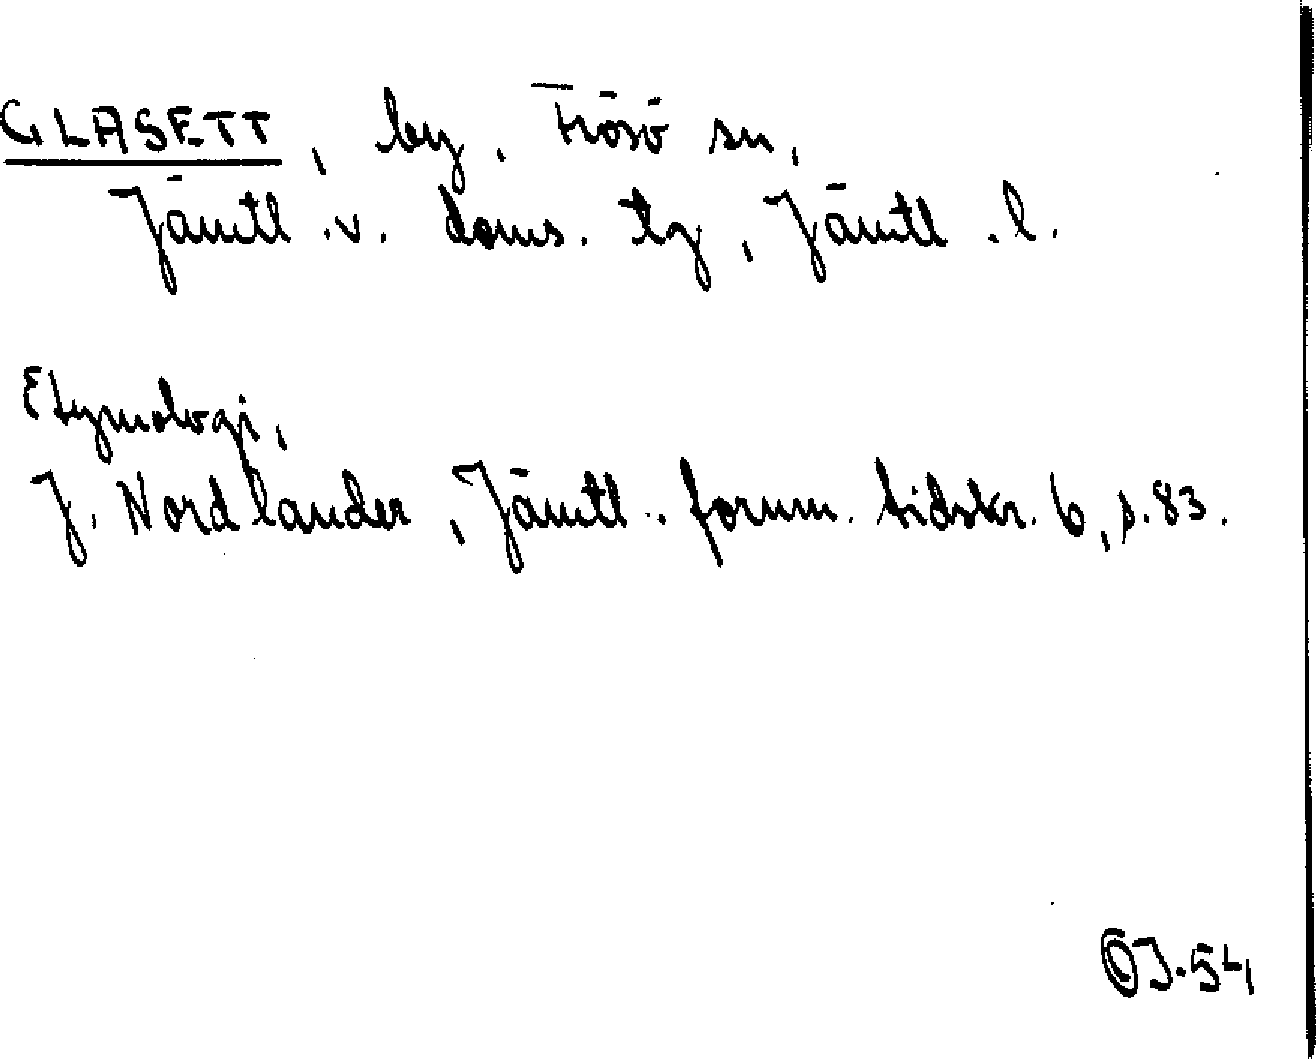 GLÄSETT, by, Frösö sn,
Jämtl. v. doms. tg, Jämtl. l.
Etymologi,
J. Nordlander, Jämtl. fornm. tidskr. 6, s. 83.
J. 54